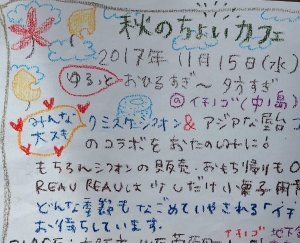 秋のちょいカフェ
2017年 11月15日(水)
ゆるっと おひるすぎ〜夕方すぎ
@イチゴ(中島)
みんな大スキ
クミスケシフォン&アジアな屋台
のコラボをおたのしみに!
もちろんシフォンの販売、おもち帰りもO
REAU REAUは少しだけ小菓子用
どんな季節もなごめていやされる「イチ
お待ちしています。
イチゴ地下